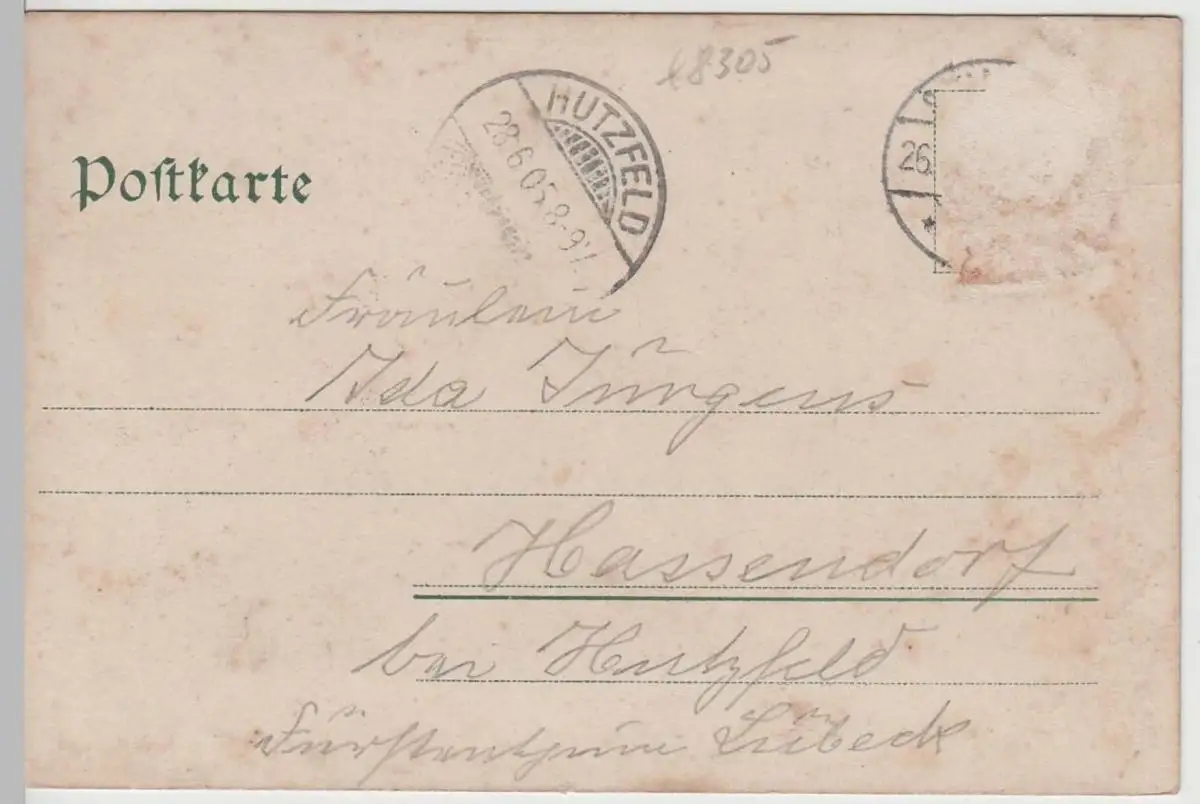 l8305
HUTZFELD
28.6.05.8-9V.
26
Postkarte
Fräulein
Ida Jürgens
Hassendorf
bei Hutzfeld
Fürstenthum Lübeck